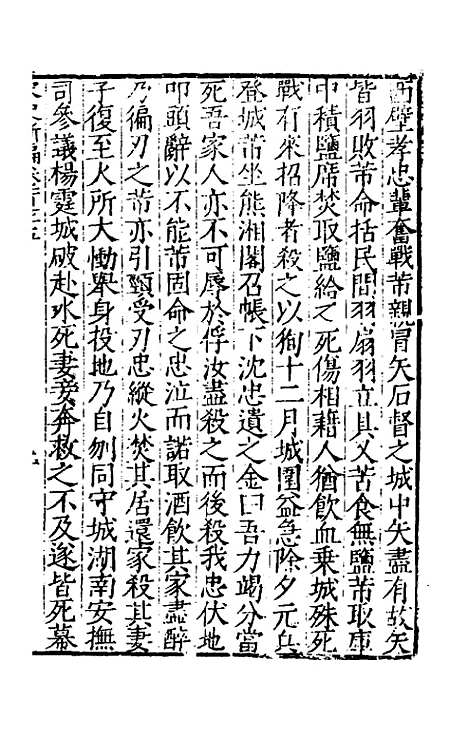 西壁孝忠輩奮戰芾親冒矢石督之城中矢盡有故矢
皆羽敗芾命括民間羽扇羽立具又苦食無鹽芾取庫
中積鹽席焚取鹽給之死傷相藉人猶飲血乗城殊死
戰有來招降者殺之以徇十二月城圍益急除夕元兵
登城芾坐熊湘閣召帳下沈忠遺之金曰吾力竭分當
死吾家人亦不可辱於俘汝盡殺之而後殺我忠伏地
叩頭辭以不能芾固命之忠泣而諾取酒飲其家盡醉
乃徧刃之芾亦引頸受刃忠縱火焚其居還家殺其妻
子復至火所大慟舉身投地乃自刎同守城湖南安撫
司參議楊霆城破赴水死妻妾奔救之不及遂皆死幕
宋史新編卷一百七十五